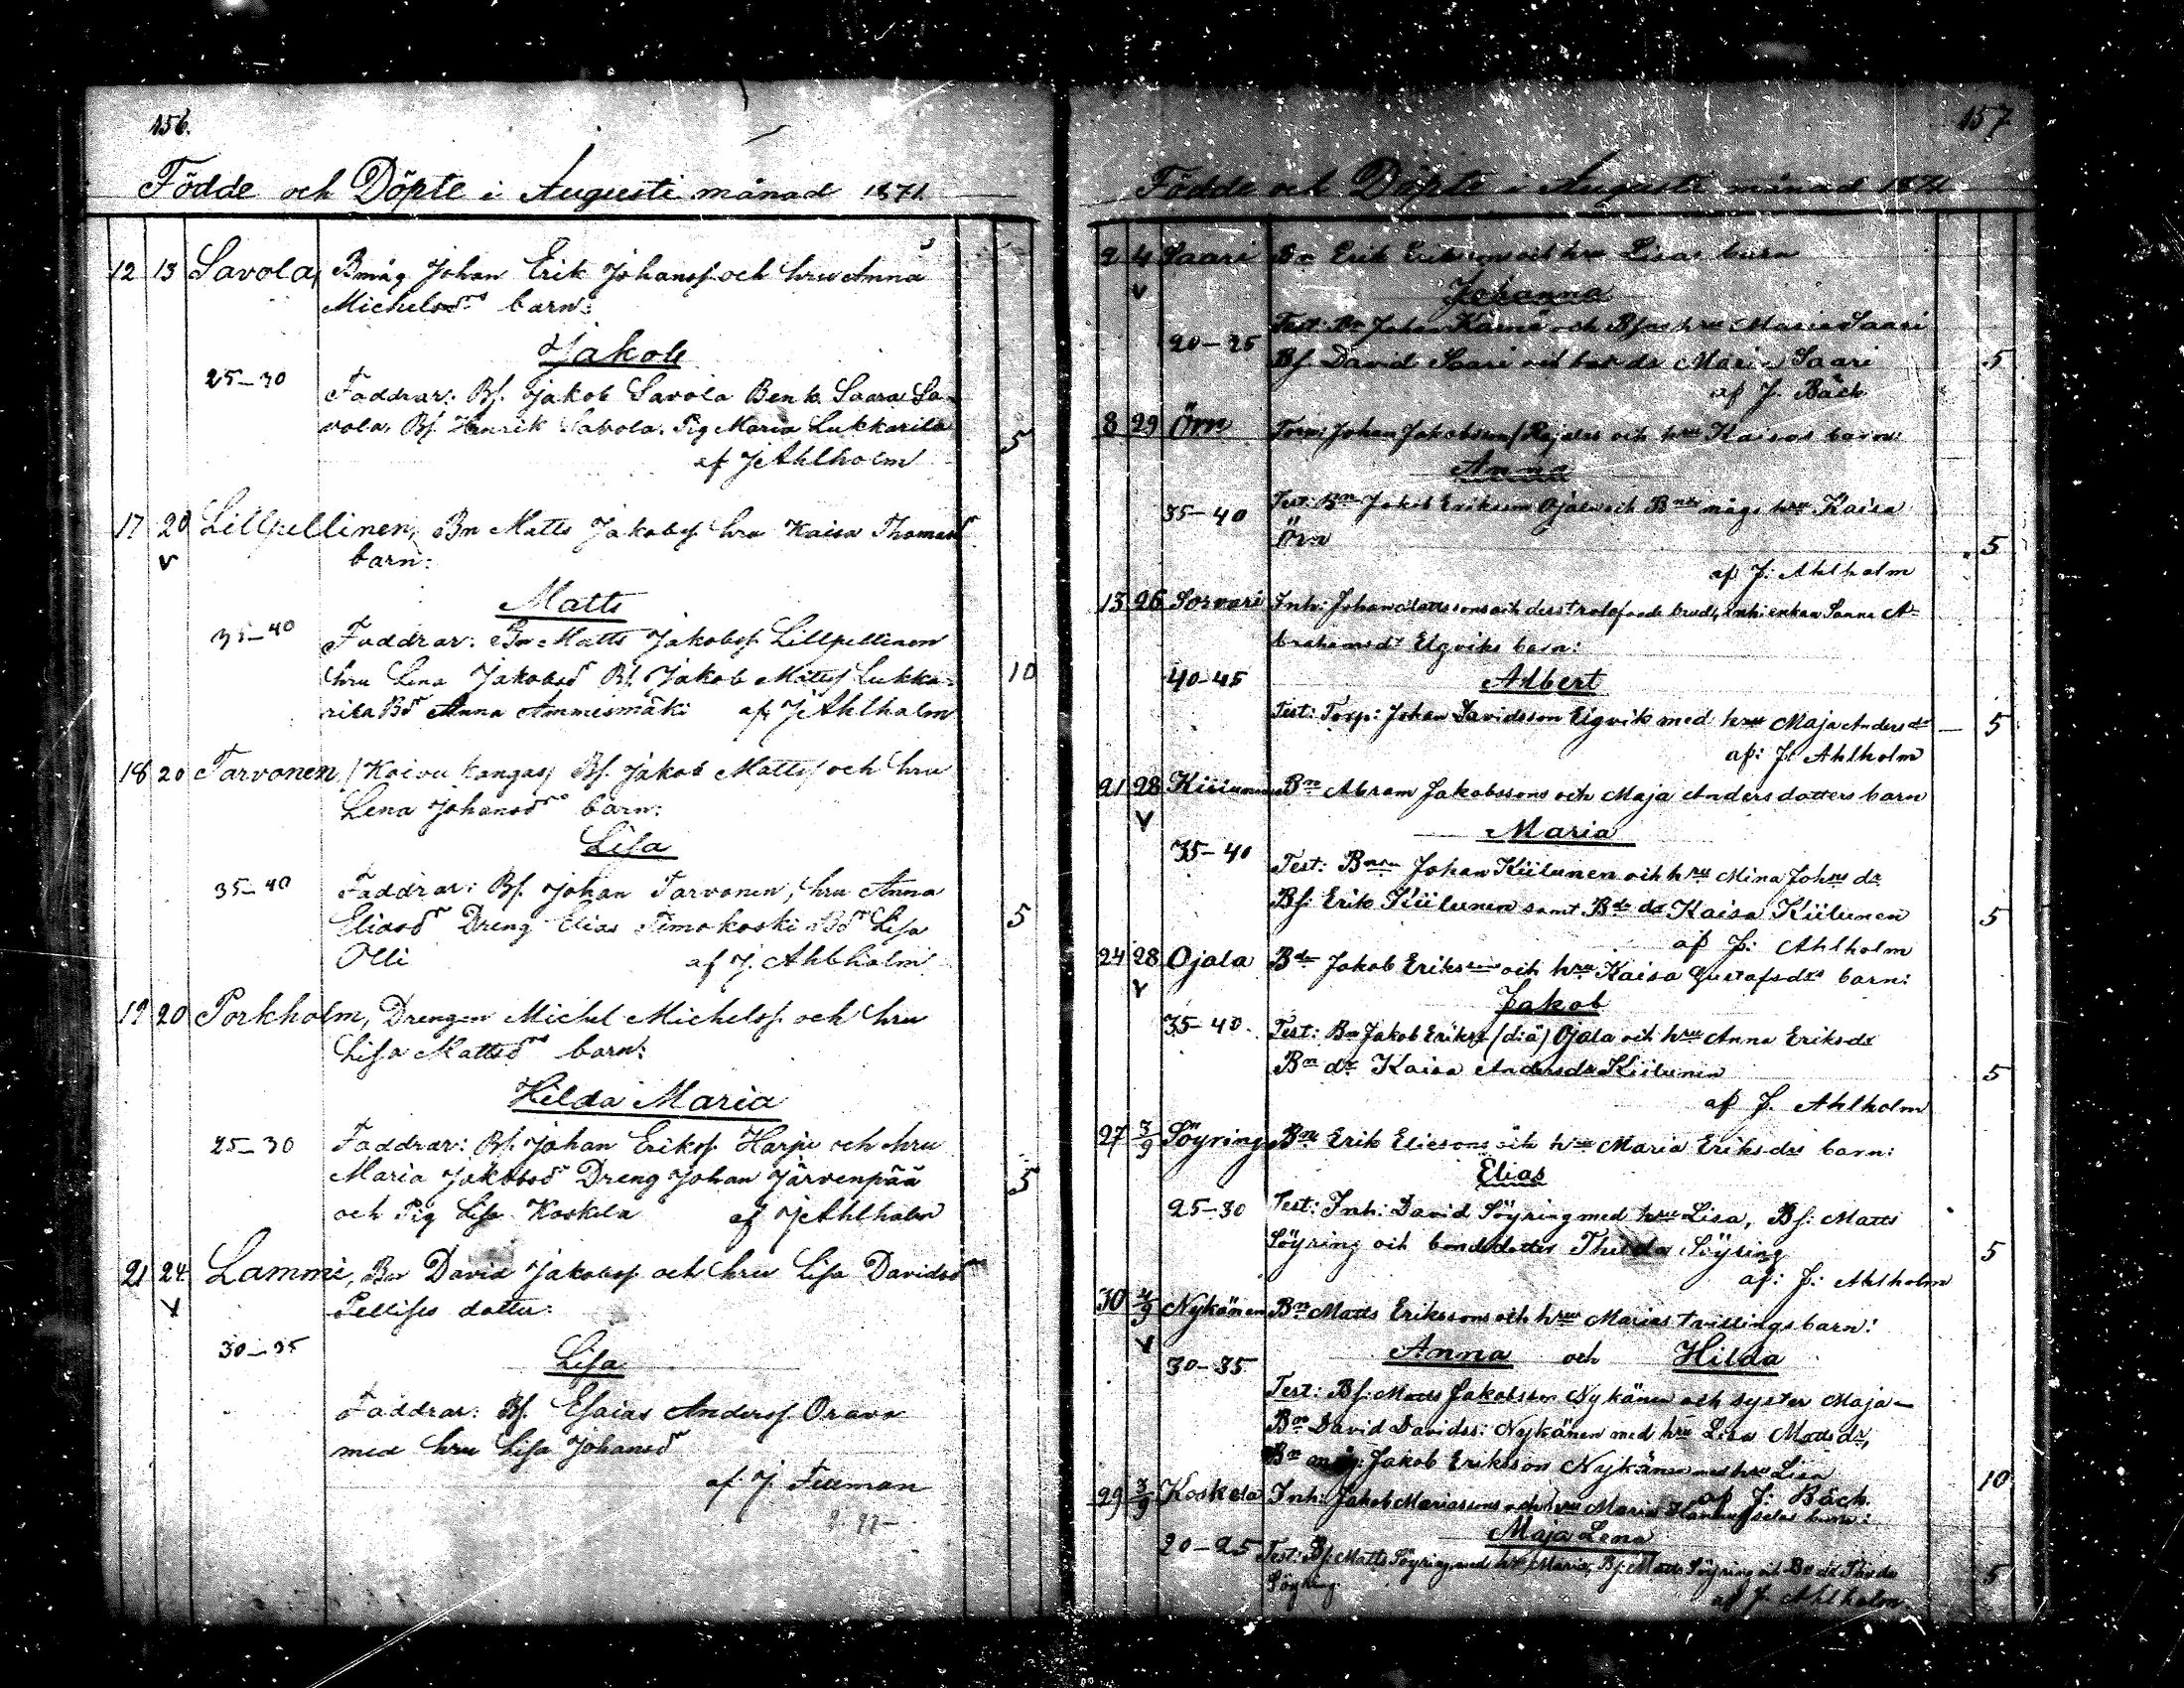 156.
Födde och Döpte i Augusti månad 1871.
12 13 Savola, Bmåg Johan Erik Johanss. och hru Anna
Michelsdrs barn:
Jakob
25-30
Faddrar: Bs. Jakob Savola Benk. Saara Sa-
vola, Bs. Henrik Savola. Pig Maria Lukkarila 5
af J Ahlholm
17 20 Lillpellinen, Bn Matts Jakobss. hru Kaisa Thomasd
v barn:
Matts
35-40 Faddrar: Bn Matts Jakobss. Lillpellinen
hru Lena Jakobsdr Bs. Jakob Matts. Lukka- 10
rila Bdr Anna Ammesmäki af J Ahlholm
18 20 Tarvonen, /Koivukangas/ Bs. Jakob Matts. och hru
Lena Johansdrs barn:
Lisa
35-40 Faddrar: Bs. Johan Tarvonen, hru Anna
Eliasdr Dreng Elias Timokoski Bdr Lisa 5
Olli af J. Ahlholm
19 20 Porkholm, Drengen Michel Michelss. och hru
Lisa Mattsdrs barn:
Hilda Maria
25-30 Faddrar: Bs. Johan Erikss. Harju och hru
Maria Jakobsdr Dreng Johan Järvenpää 5
och Pig Lisa Koskela af J Ahlholm
21 24 Lammi, Bn David Jakobss. och hru Lisa Davidsdrs
v Pellises dotter:
30-35
Lisa
Faddrar: Bs. Esaias Anderss. Orava
med hru Lisa Johansdr
af J. Telman
157
Födde och Döpte i Augusti månad 1871
2 4 Saari Bn Erik Erikssons och hru Lisas barn
v Johanna
Test: Bn Johan Kärnä och Bsns hru Maria Saari
20-25 Bs. David Saari och bondedr Maria Saari 5
af J. Bäck
8 29 Örn Torp: Johan Jakobsson/Rajalas och hru Kaisas barn:
Anna
35-40 Test: Bn Jakob Eriksson Ojala och Bns mågs hru Kaisa
Örn 5
af J: Ahlholm
13 26 Sorvari Inh: Johan Mattssons och dess trolofvade brud, inh: enkan Sanna A-
brahamsdr Elgviks barn:
40-45 Albert
Test: Torp: Johan Davidsson Elgvik med hru Maja Andersdr 5
af: J: Ahlholm
21 28 Kiilunen Bn Abram Jakobssons och Maja Andersdotters barn
v Maria
35-40 Test: Bn Johan Kiilunen och hru Mina Johnsdr
Bs: Erik Kiilunen samt Bdedr Kaisa Kiilunen 5
af J: Ahlholm
24 28 Ojala Bde Jakob Erikssons och hru Kaisa Gustafsdrs barn:
v Jakob
35-40. Test: Bn Jakob Erikss (d:ä) Ojala och hru Anna Eriksdr
Bn dr Kaisa Andersdr Kiilunen 5
af J. Ahlholm
27 3/9 Söyrings Bn Erik Eliesons och hru Maria Eriksdrs barn:
Elias
25-30 Test: Inh: David Söyring med hru Lisa, Bs: Matts
Söyring och bondedotter Thilda Söyring 5
af: J: Ahlholm
30 4/9 Nykänen Bn Matts Erikssons och hru Marias tvillingsbarn:
v Anna och Hilda
30-35
Test: Bs: Matts Jakobsson Nykänen och syster Maja
Bn David Davidss: Nykänen med hru Lisa Mattsdr,
Bn måg: Jakob Eriksson Nykänen med hru Lisa 10
af J: Bäck.
29 3/9 Koskela Inh: Jakob Mariassons och hru Maria barn:
Maja Lena
20-25 Test: Bs: Matts Söyring med hru Maria, Bs: Matts Söyring och Bn dr Thilda
Söyring 5
af J. Ahlholm